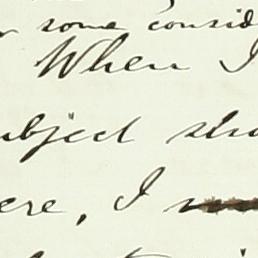 some consid
When I
ubject sho
ere, I